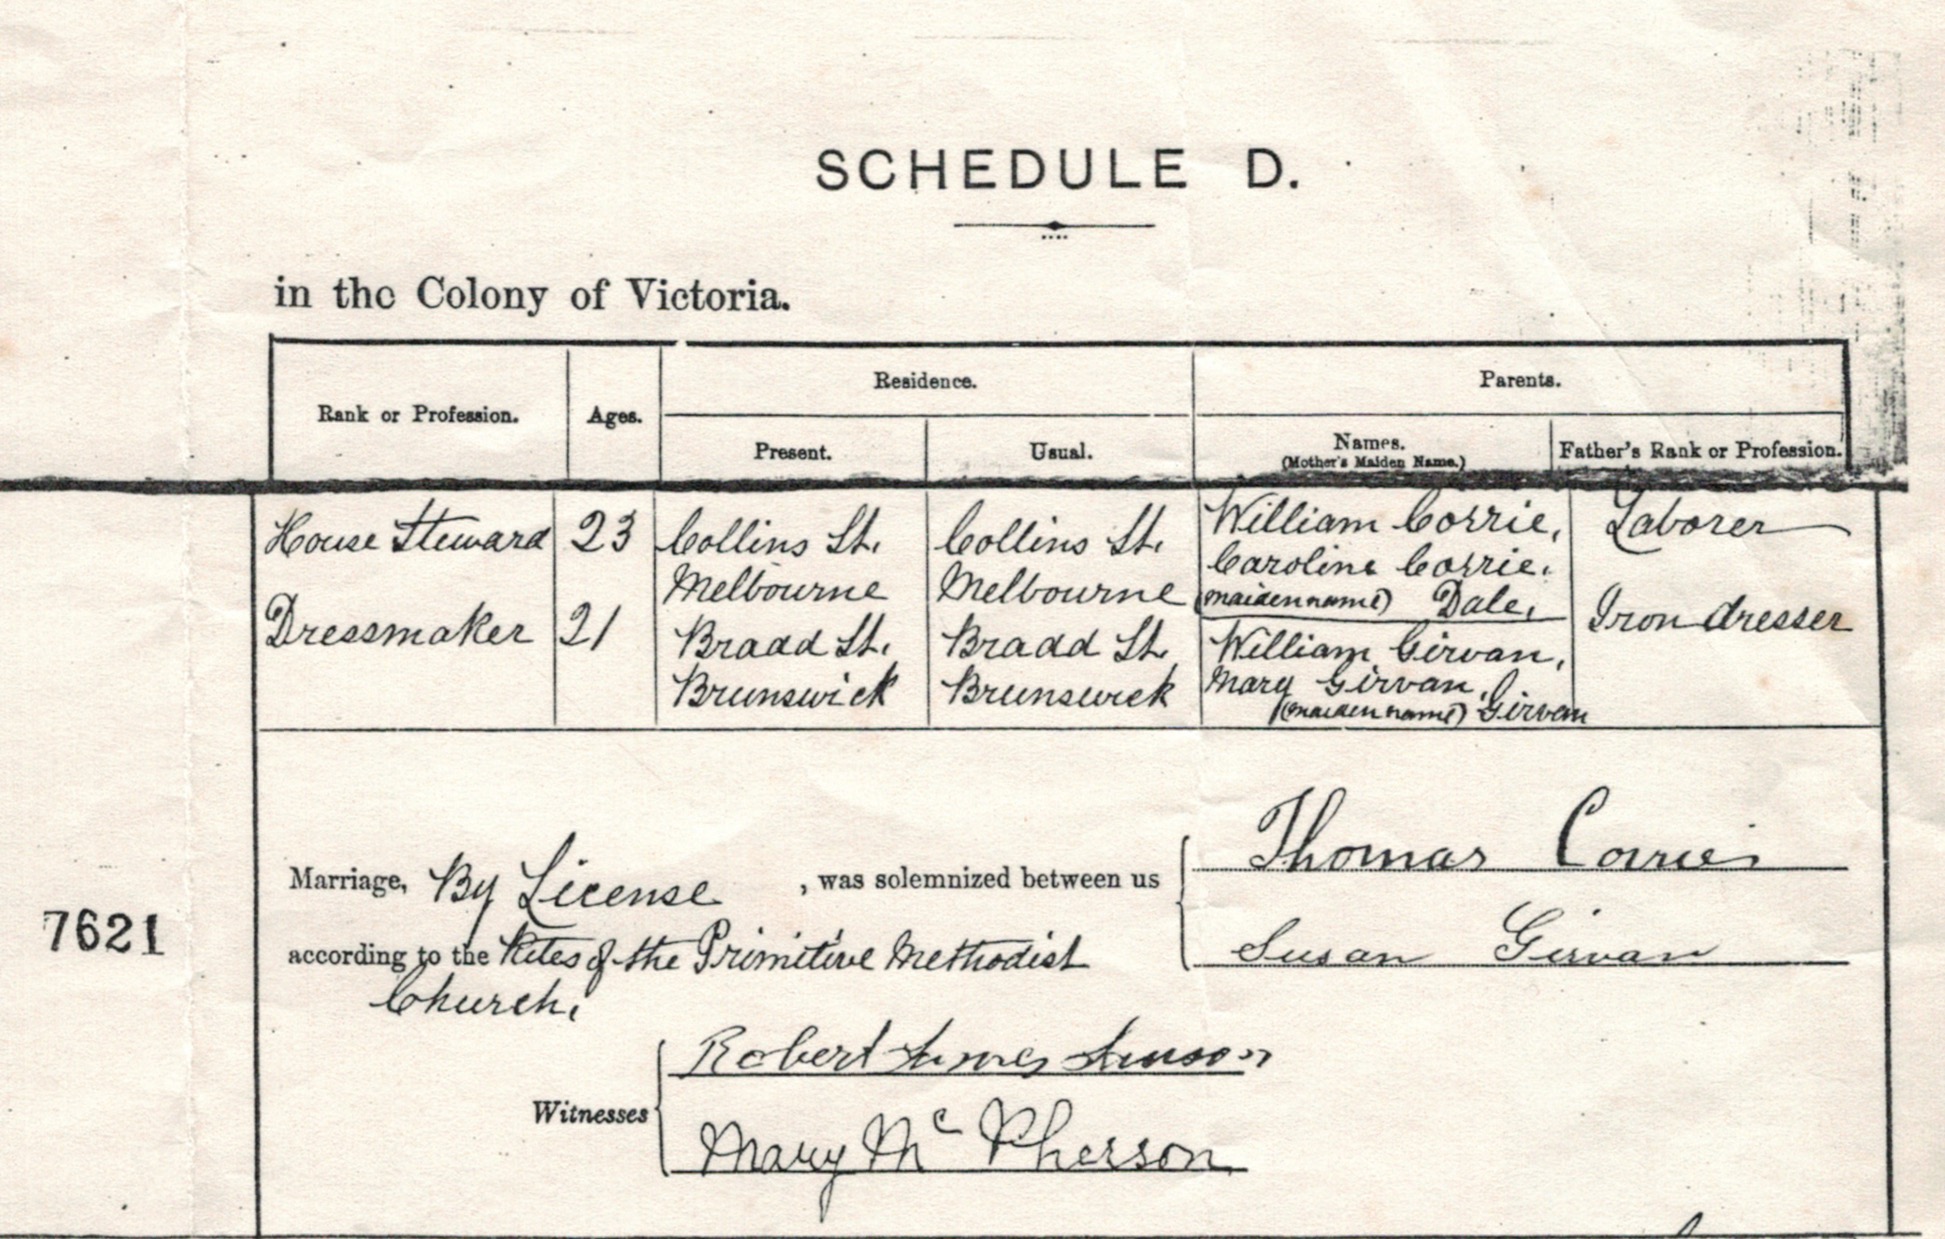 SCHEDULE D.
in the Colony of Victoria.
Rank or Profession. Ages. Residence. Parents.
Present. Usual. Names. (Mother's Maiden Name.) Father's Rank or Profession.
House Steward 23 Collins St. Collins St. William Corrie, Laborer
Melbourne Melbourne Caroline Corrie.
(maiden name) Dale.
Dressmaker 21 Bradd St. Bradd St. William Girvan, Iron dresser
Brunswick Brunswick Mary Girvan,
(maiden name) Girvan
Marriage, By License , was solemnized between us Thomas Corrie
7621
according to the Rites of the Primitive Methodist Susan Girvan
Church.
Robert James
Witnesses
Mary McPherson